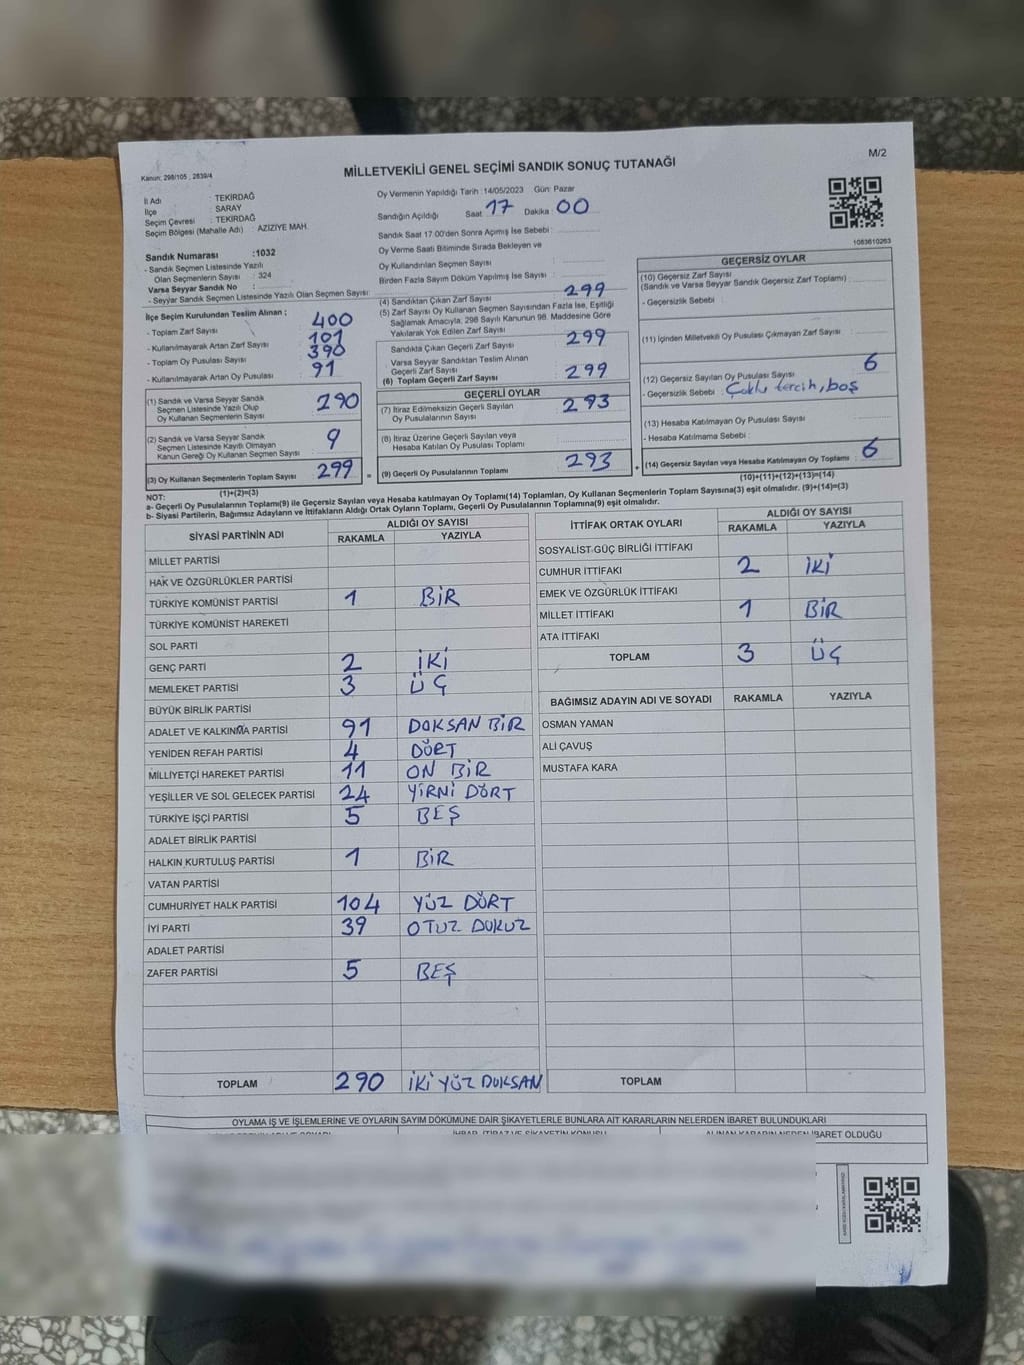 M/2
Kanun; 298/105 , 2839/4
MİLLETVEKİLİ GENEL SEÇİMİ SANDIK SONUÇ TUTANAĞI
İl Adı : TEKİRDAĞ
İlçe : SARAY
Seçim Çevresi : TEKİRDAĞ
Seçim Bölgesi (Mahalle Adı) : AZIZIYE MAH.
Sandık Numarası :1032
- Sandık Seçmen Listesinde Yazılı
Olan Seçmenlerin Sayısı : 324
Varsa Seyyar Sandık No :
- Seyyar Sandık Seçmen Listesinde Yazılı Olan Seçmen Sayısı:
İlçe Seçim Kurulundan Teslim Alınan ;
- Toplam Zarf Sayısı 400
- Kullanılmayarak Artan Zarf Sayısı 101
- Toplam Oy Pusulası Sayısı 390
- Kullanılmayarak Artan Oy Pusulası 91
(1) Sandık ve Varsa Seyyar Sandık
Seçmen Listesinde Yazılı Olup
Oy Kullanan Seçmenlerin Sayısı 290
(2) Sandık ve Varsa Seyyar Sandık
Seçmen Listesinde Kayıtlı Olmayan
Kanun Gereği Oy Kullanan Seçmen Sayısı 9
(3) Oy Kullanan Seçmenlerin Toplam Sayısı 299
(1)+(2)=(3)
Oy Vermenin Yapıldığı Tarih : 14/05/2023 Gün: Pazar
Sandığın Açıldığı Saat : 17 Dakika : 00
Sandık Saat 17:00'den Sonra Açılmış İse Sebebi :
Oy Verme Saati Bitiminde Sırada Bekleyen ve
Oy Kullandırılan Seçmen Sayısı :
Birden Fazla Sayım Döküm Yapılmış İse Sayısı :
(4) Sandıktan Çıkan Zarf Sayısı 299
(5) Zarf Sayısı Oy Kullanan Seçmen Sayısından Fazla İse, Eşitliği
Sağlamak Amacıyla; 298 Sayılı Kanunun 98. Maddesine Göre
Yakılarak Yok Edilen Zarf Sayısı
Sandıkta Çıkan Geçerli Zarf Sayısı 299
Varsa Seyyar Sandıktan Teslim Alınan
Geçerli Zarf Sayısı
(6) Toplam Geçerli Zarf Sayısı 299
GEÇERLİ OYLAR
(7) İtiraz Edilmeksizin Geçerli Sayılan
Oy Pusulalarının Sayısı 293
(8) İtiraz Üzerine Geçerli Sayılan veya
Hesaba Katılan Oy Pusulası Toplamı
= (9) Geçerli Oy Pusulalarının Toplamı 293 +
1083610263
GEÇERSİZ OYLAR
(10) Geçersiz Zarf Sayısı
(Sandık ve Varsa Seyyar Sandık Geçersiz Zarf Toplamı)
- Geçersizlik Sebebi :
(11) İçinden Milletvekili Oy Pusulası Çıkmayan Zarf Sayısı
(12) Geçersiz Sayılan Oy Pusulası Sayısı 6
- Geçersizlik Sebebi : Çoklu tercih, boş
(13) Hesaba Katılmayan Oy Pusulası Sayısı
- Hesaba Katılmama Sebebi :
(14) Geçersiz Sayılan veya Hesaba Katılmayan Oy Toplamı 6
(10)+(11)+(12)+(13)=(14)
NOT:
a- Geçerli Oy Pusulalarının Toplamı(9) ile Geçersiz Sayılan veya Hesaba katılmayan Oy Toplamı(14) Toplamları, Oy Kullanan Seçmenlerin Toplam Sayısına(3) eşit olmalıdır. (9)+(14)=(3)
b- Siyasi Partilerin, Bağımsız Adayların ve İttifakların Aldığı Ortak Oyların Toplamı, Geçerli Oy Pusulalarının Toplamına(9) eşit olmalıdır.
SİYASİ PARTİNİN ADI ALDIĞI OY SAYISI
RAKAMLA YAZIYLA
MİLLET PARTİSİ
HAK VE ÖZGÜRLÜKLER PARTİSİ
TÜRKİYE KOMÜNİST PARTİSİ 1 BİR
TÜRKİYE KOMÜNİST HAREKETİ
SOL PARTİ
GENÇ PARTİ 2 İKİ
MEMLEKET PARTİSİ 3 ÜÇ
BÜYÜK BİRLİK PARTİSİ
ADALET VE KALKINMA PARTİSİ 91 DOKSAN BİR
YENİDEN REFAH PARTİSİ 4 DÖRT
MİLLİYETÇİ HAREKET PARTİSİ 11 ON BİR
YEŞİLLER VE SOL GELECEK PARTİSİ 24 YİRNİ DÖRT
TÜRKİYE İŞÇİ PARTİSİ 5 BEŞ
ADALET BİRLİK PARTİSİ
HALKIN KURTULUŞ PARTİSİ 1 BİR
VATAN PARTİSİ
CUMHURİYET HALK PARTİSİ 104 YÜZ DÖRT
İYİ PARTİ 39 OTUZ DOKUZ
ADALET PARTİSİ
ZAFER PARTİSİ 5 BEŞ
TOPLAM 290 İKİ YÜZ DOKSAN
İTTİFAK ORTAK OYLARI ALDIĞI OY SAYISI
RAKAMLA YAZIYLA
SOSYALİST GÜÇ BİRLİĞİ İTTİFAKI
CUMHUR İTTİFAKI 2 İKİ
EMEK VE ÖZGÜRLÜK İTTİFAKI
MİLLET İTTİFAKI 1 BİR
ATA İTTİFAKI
TOPLAM 3 ÜÇ
BAĞIMSIZ ADAYIN ADI VE SOYADI RAKAMLA YAZIYLA
OSMAN YAMAN
ALİ ÇAVUŞ
MUSTAFA KARA
TOPLAM
OYLAMA İŞ VE İŞLEMLERİNE VE OYLARIN SAYIM DÖKÜMÜNE DAİR ŞİKAYETLERLE BUNLARA AİT KARARLARIN NELERDEN İBARET BULUNDUKLARI
İHBAR, İTİRAZ VE ŞİKAYETİN KONUSU ALINAN KARARIN NEDEN İBARET OLDUĞU